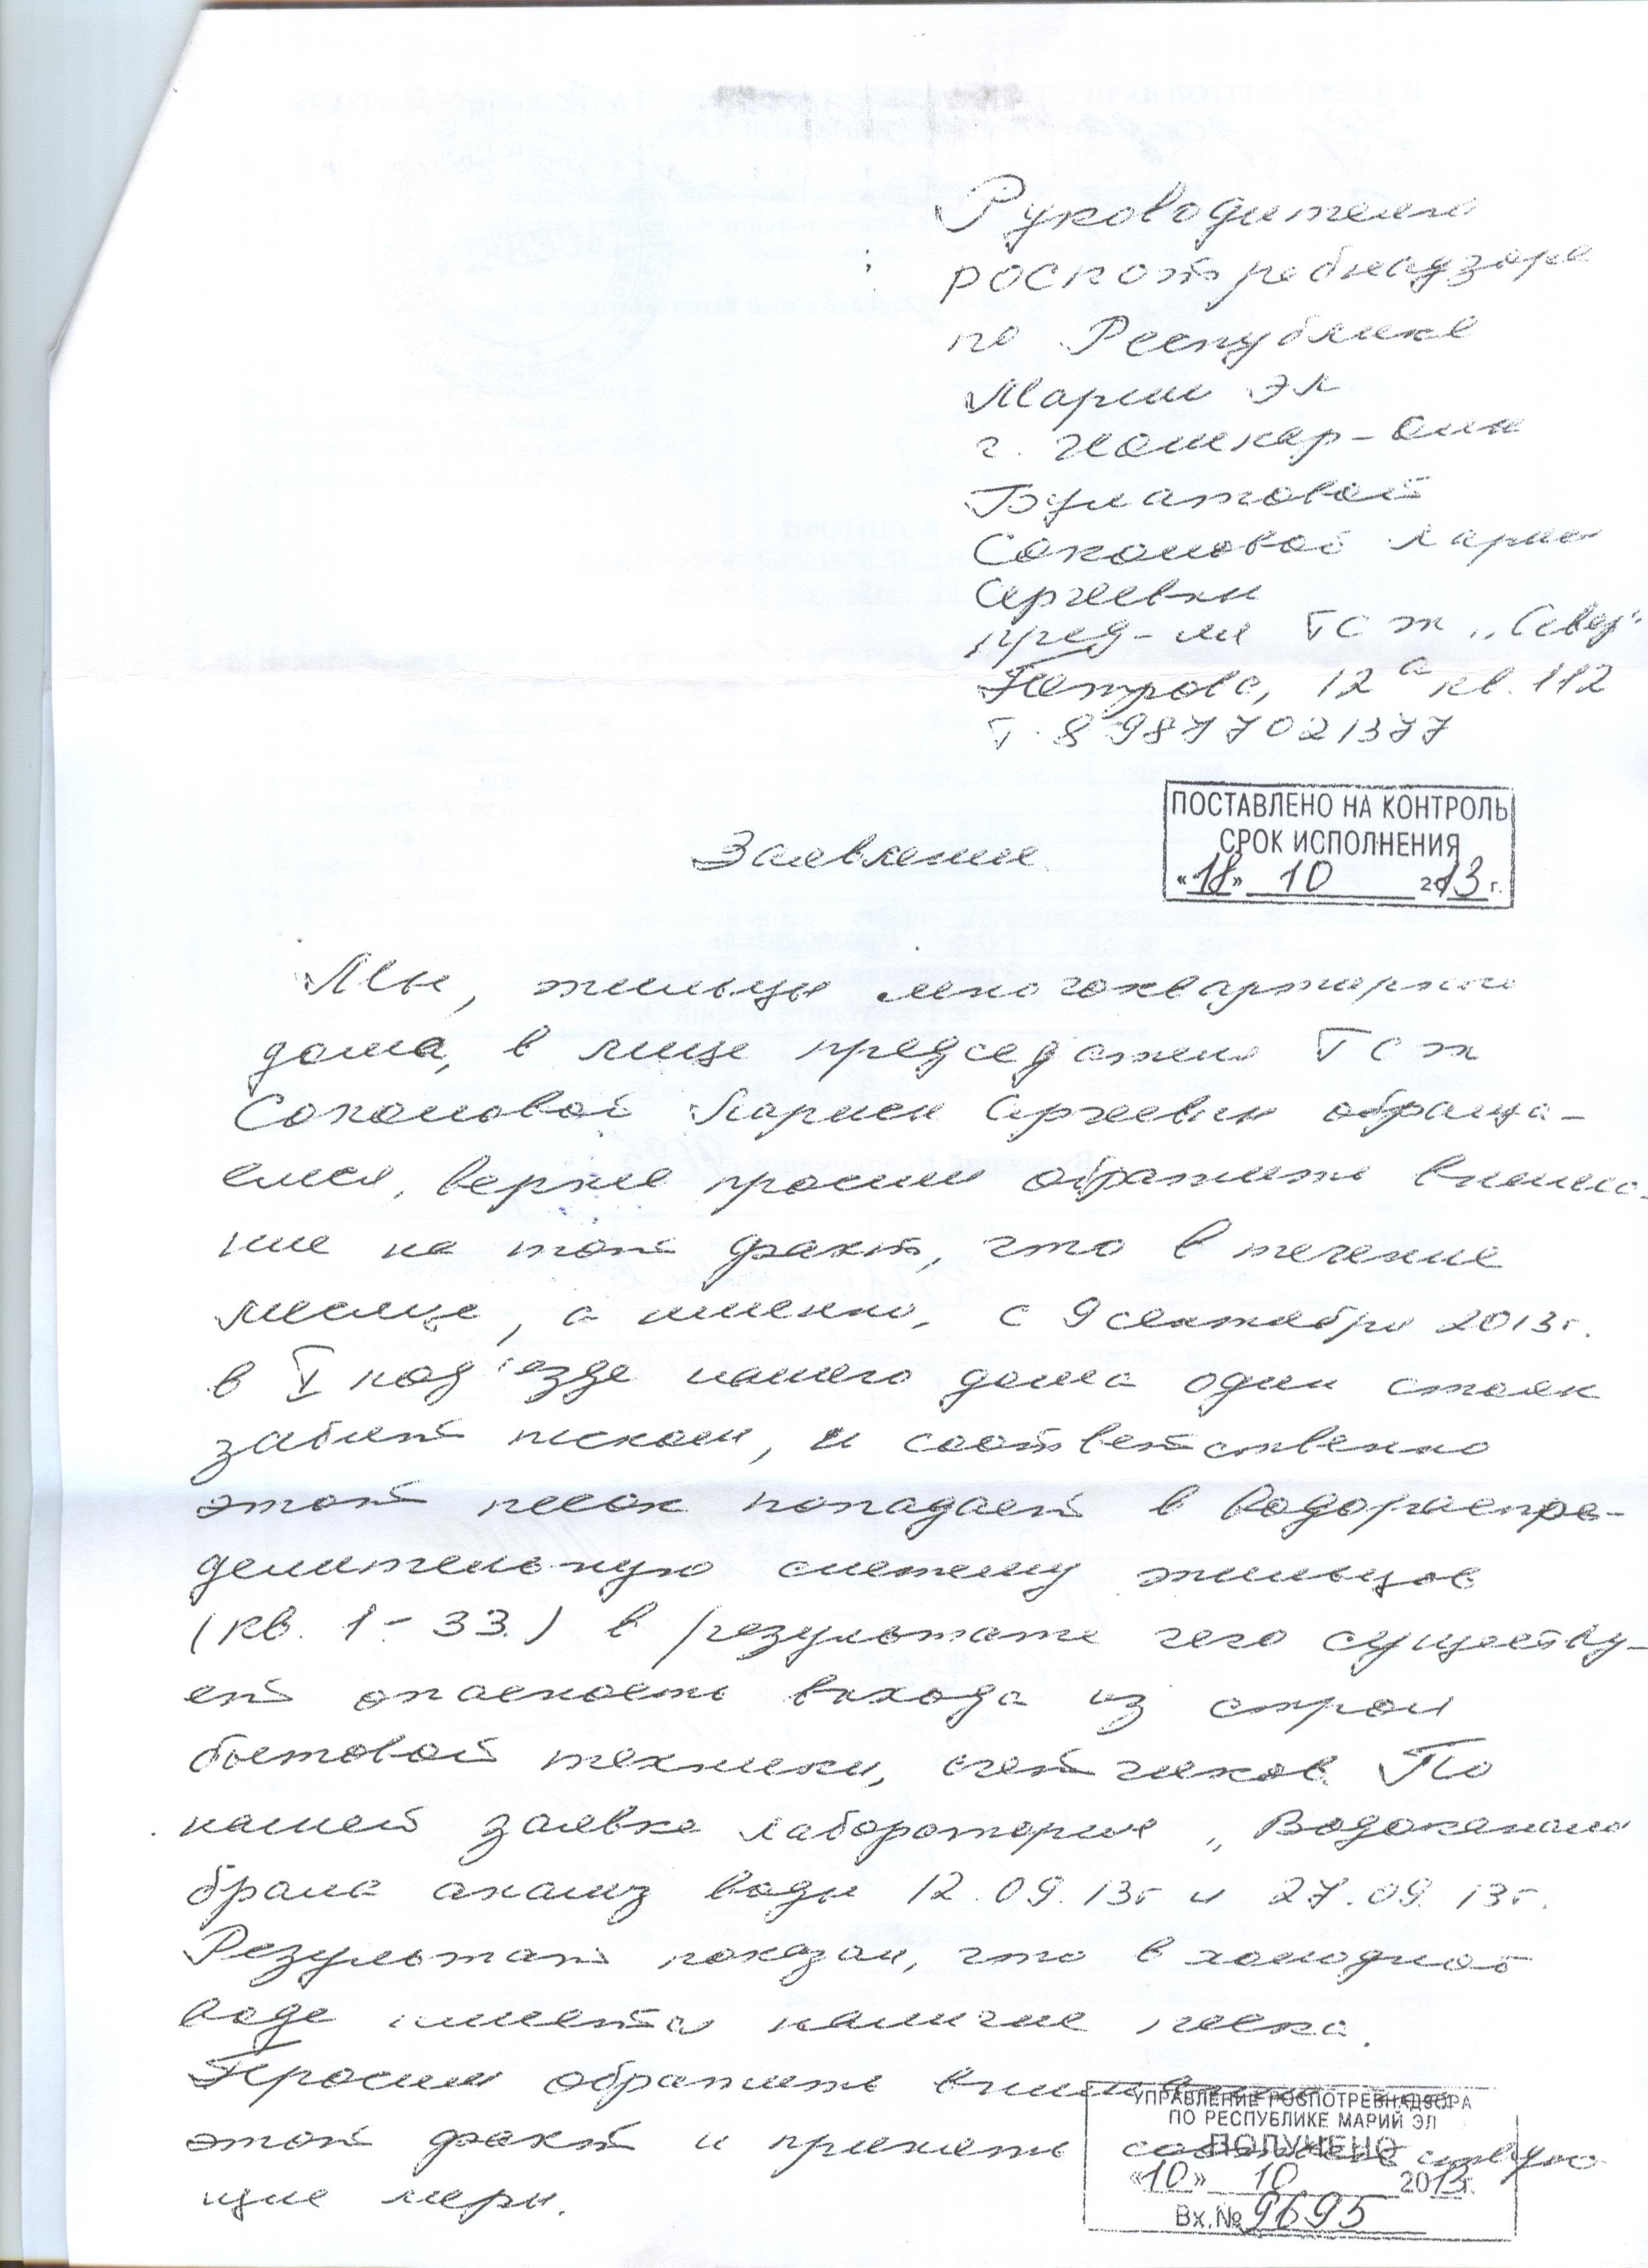 Руководителю
роспотребнадзора
по Республике
Марий Эл
г. Йошкар-Олы
Булатовой
Соколовой Ларисы
Сергеевны
пред-ля ТСЖ „Север"
Петрова, 12а кв. 112
т. 89877021377
ПОСТАВЛЕНО НА КОНТРОЛЬ
СРОК ИСПОЛНЕНИЯ
«18» 10 2013 г.
Заявление.
Мы, жильцы многоквартирного
дома, в лице председателя ТСЖ
Соколовой Ларисы Сергеевны обраща-
емся, вернее просим обратить внима-
ние на тот факт, что в течение
месяца, а именно, с 9 сентября 2013г.
в I подъезде нашего дома один стояк
забит песком, и соответственно
этот песок попадает в водораспре-
делительную систему жильцов
(кв. 1-33.) в результате чего существу-
ет опасность выхода из строя
бытовой техники, счетчиков. По
нашей заявке лаборатория „Водоканала
брала анализ воды 12.09.13г и 27.09.13г.
Результат показал, что в холодной
воде имеется наличие песка.
Просим обратить внимание
этот факт и принять соответствую-
щие меры.
УПРАВЛЕНИЕ РОСПОТРЕБНАДЗОРА
ПО РЕСПУБЛИКЕ МАРИЙ ЭЛ
ПОЛУЧЕНО
«10» 10 2013г.
Вх.№ 9695